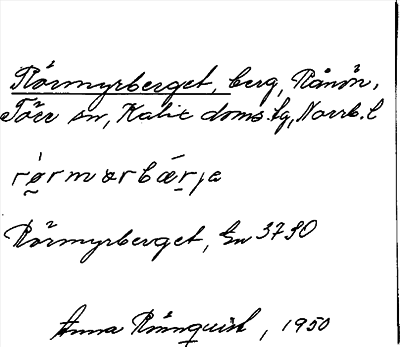 Rörmyrberget, berg, Rånön,
Töre sn, Kalix doms.lg, Norrb.l
rø̀rmɐrbǽrja
Rörmyrberget, En 3730
Anna Rönnquist, 1950